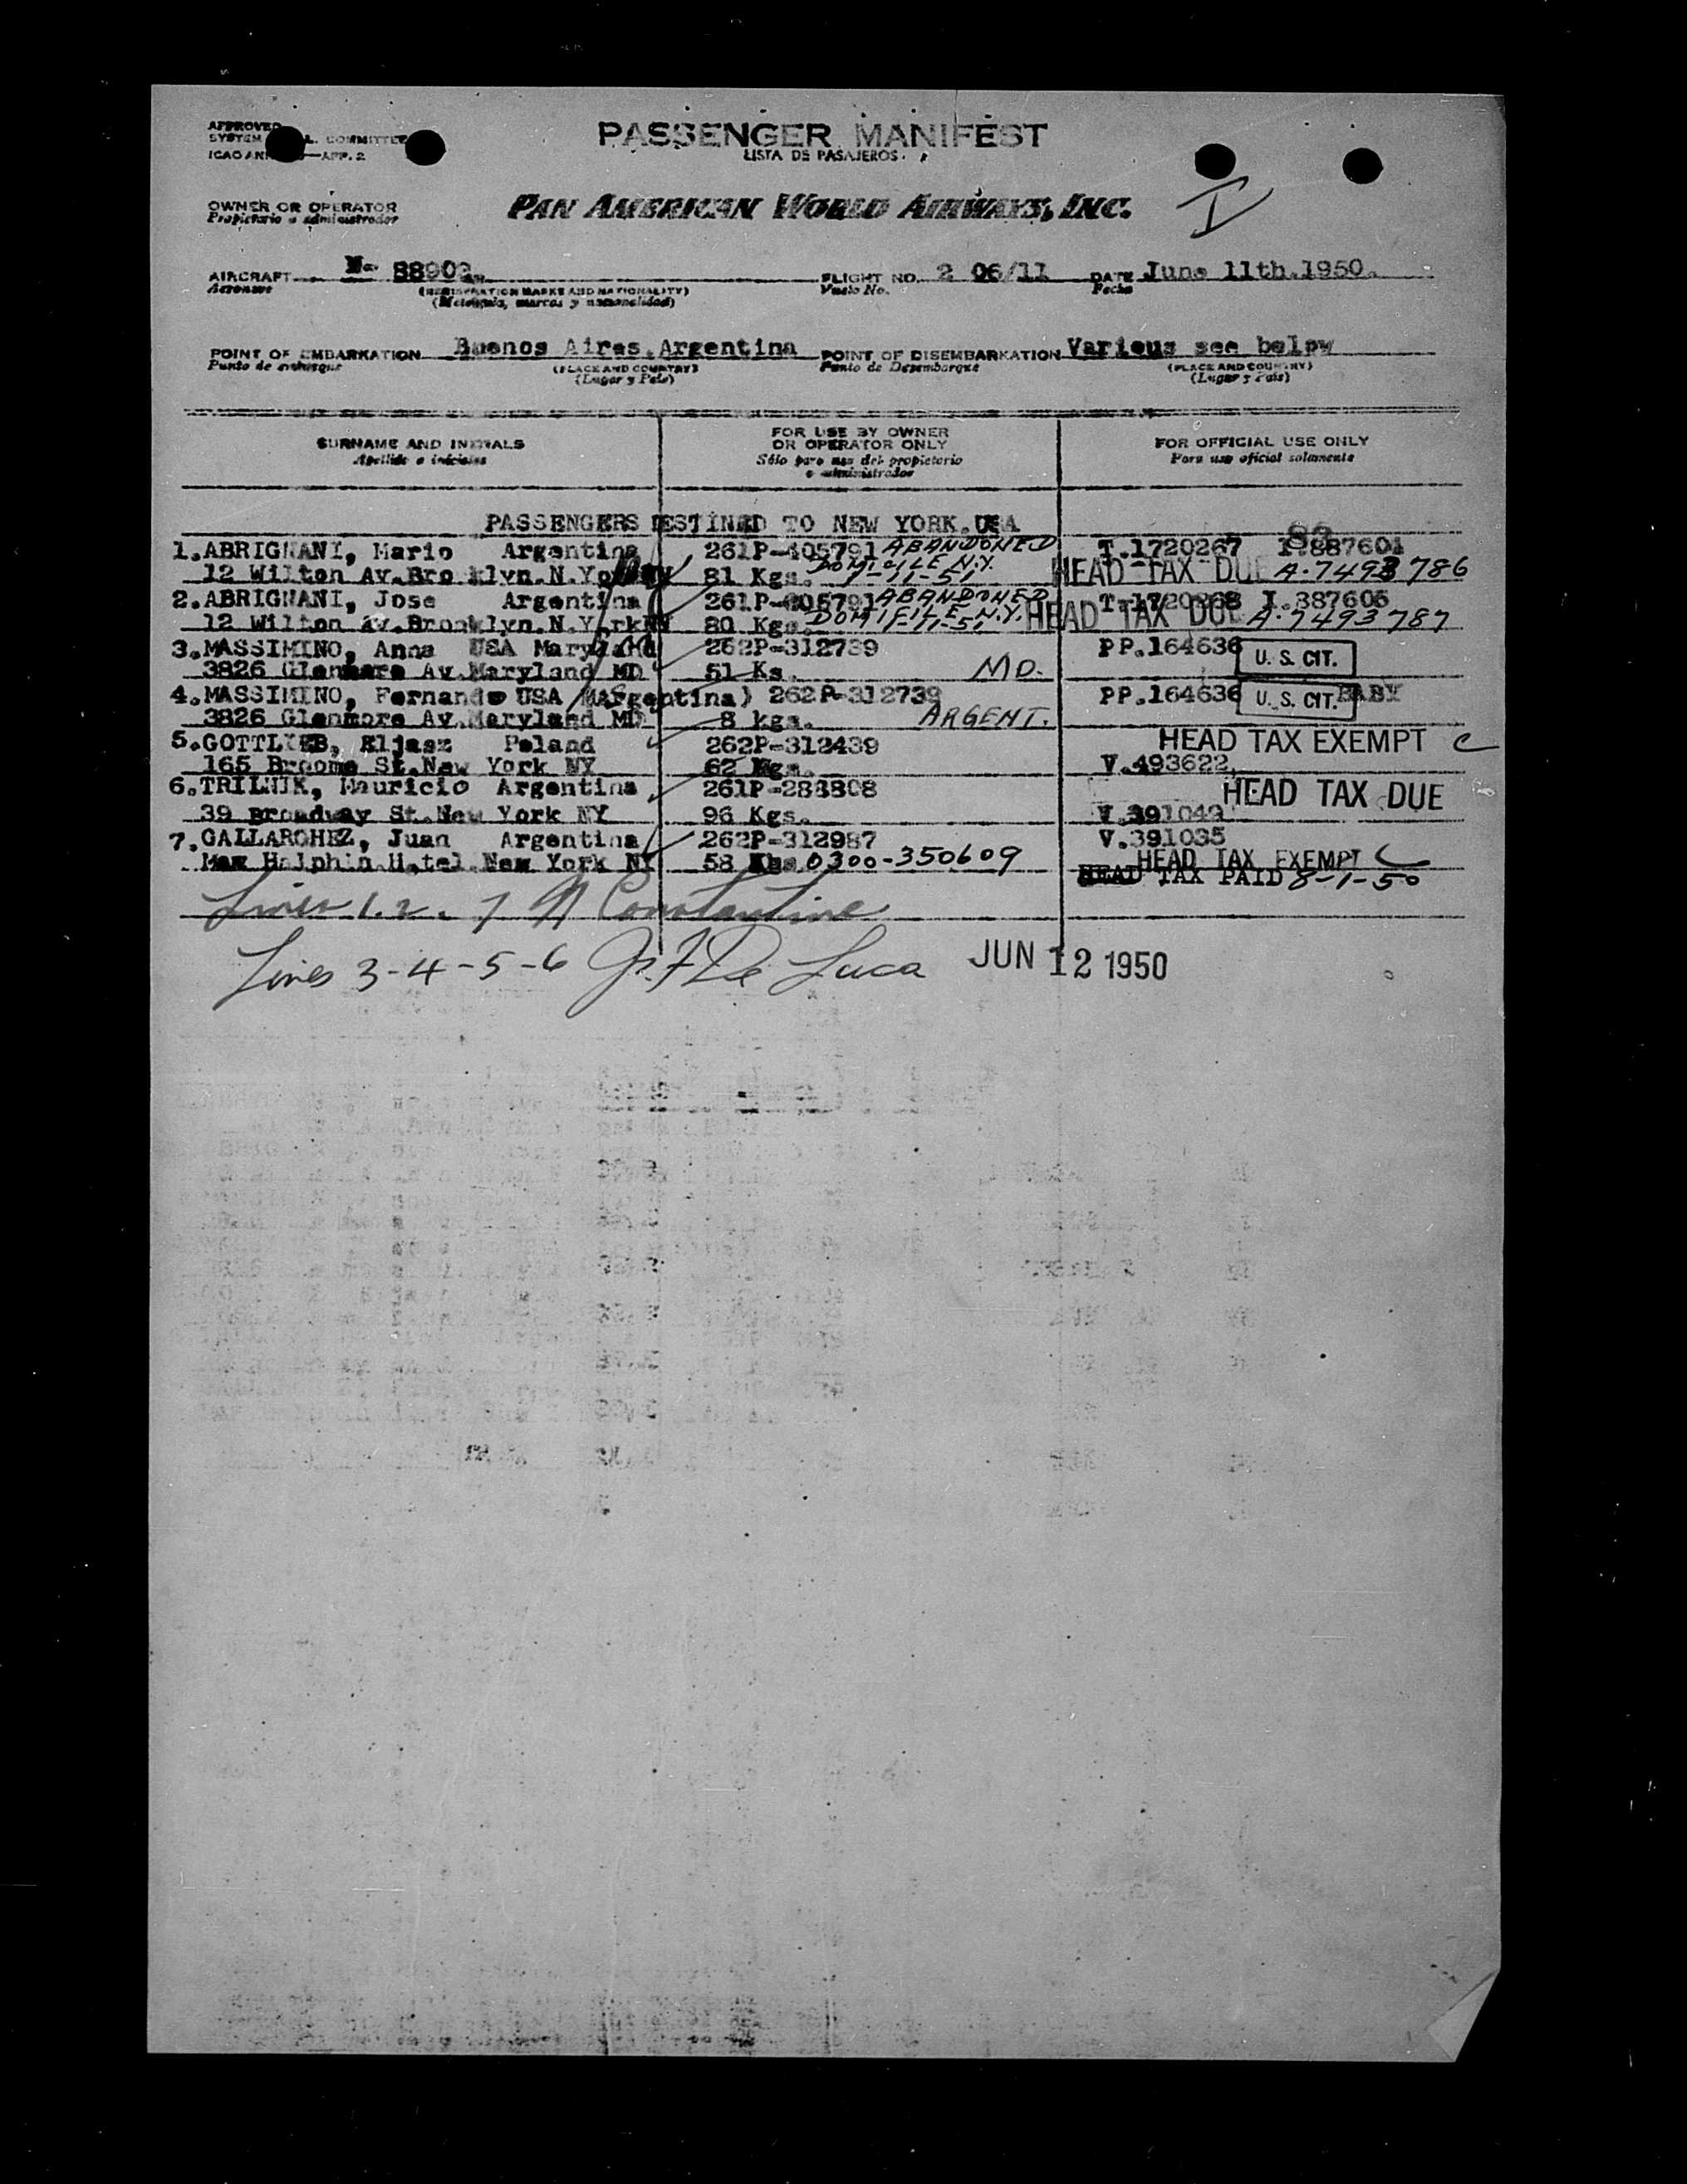 APPROVED
SYSTEM L. COMMITTEE
ICAO APP. 2
PASSENGER MANIFEST
LISTA DE PASAJEROS
OWNER OR OPERATOR
Propietario o administrador
PAN AMERICAN WORLD AIRWAYS, INC.
I
AIRCRAFT
Aeronave
(REGISTRATION MARKS AND NATIONALITY)
FLIGHT NO. 2 06/11
Vuelo No.
DATE June 11th.1950.
Fecha
POINT OF EMBARKATION Buenos Aires.Argentina
Punto de embarque
(PLACE AND COUNTRY)
(Lugar y País)
POINT OF DISEMBARKATION Various see below
Punto de Desembarque
(PLACE AND COUNTRY)
(Lugar y País)
SURNAME AND INITIALS
Apellido e iniciales
FOR USE BY OWNER
OR OPERATOR ONLY
Sólo para uso del propietario
o administrador
FOR OFFICIAL USE ONLY
Para uso oficial solamente
PASSENGERS DESTINED TO NEW YORK.USA
1.ABRIGNANI, Mario Argentina ABANDONED T.1720267
12 Wilton Av.Brooklyn.N.York 81 Kgs. DOMICILE N.Y. 1-11-51 HEAD TAX DUE A-7493786
2.ABRIGNANI, Jose Argentina ABANDONED T.1720268
12 Wilton Av.Brooklyn.N.York 80 Kgs. DOMICILE N.Y. 1-11-51 HEAD TAX DUE A-7493787
3.MASSIMINO, Anna USA Maryland 262P-312739 PP.164636 U. S. CIT.
3826 Glenmore Av.Maryland MD 51 Ks. MD.
4.MASSIMINO, Fernando USA (Argentina) 262P-312739 PP.164636 U. S. CIT. BABY
3826 Glenmore Av.Maryland MD 8 kgs. ARGENT.
5.GOTTLIEB, Eljasz Poland 262P-312439 HEAD TAX EXEMPT C
165 Broome St.New York NY 62 Kgs. V.493622
6.TRILNIK, Mauricio Argentina HEAD TAX DUE
39 Broadway St.New York NY 96 Kgs. V.391049
7.GALLARCHEZ, Juan Argentina 262P-312987 V.391035
Hotel New York NY 58 Kgs 0300-350609 HEAD TAX EXEMPT C
HEAD TAX PAID 8-1-50
Lines 1. 2. 7 Constantine
Lines 3-4-5-6 De Luca JUN 12 1950